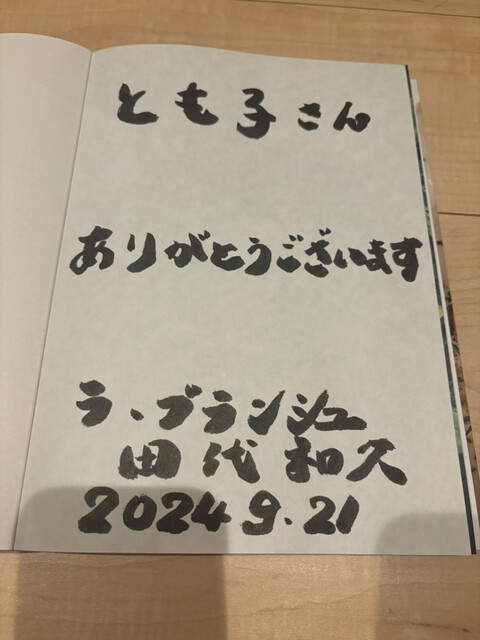 とも子さん
ありがとうございます
ラ、ブランシュ
田代和久
2024 9.21